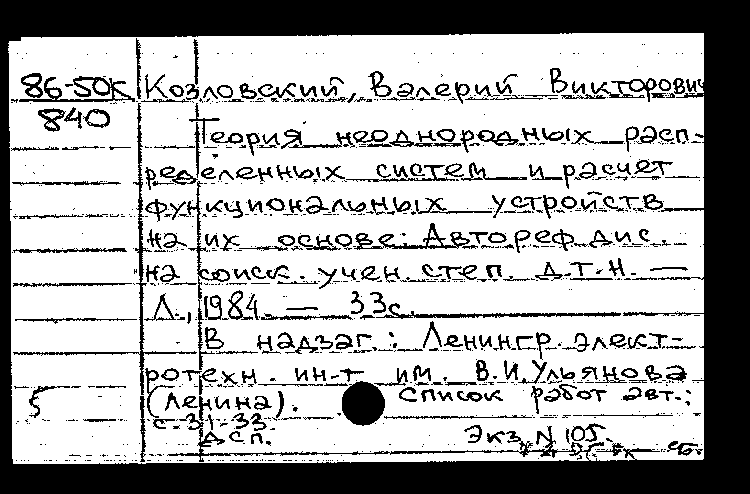 86-50К Козловский, Валерий Викторович
840
Теория неоднородных расп-
ределенных систем и расчет
функциональных устройств
на их основе: Автореф. дис.
на соиск. учен. степ. д.т.н. —
Л., 1984. — 33с.
В надзаг.: Ленингр. элект-
ротехн. ин-т им. В.И. Ульянова
5 (Ленина). Список работ авт.:
с. 31-33.
дсп. Экз. N 105.